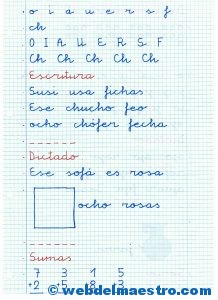 o i a u e r s f
ch
O I A U E R S F
Ch Ch Ch Ch Ch
Escritura
Susi usa fichas
Ese chucho feo
ocho chófer fecha
Dictado
Ese sofá es rosa
ocho rosas
Sumas
7 3 1 5
+2 +5 +8 +3
© webdelmaestro.com